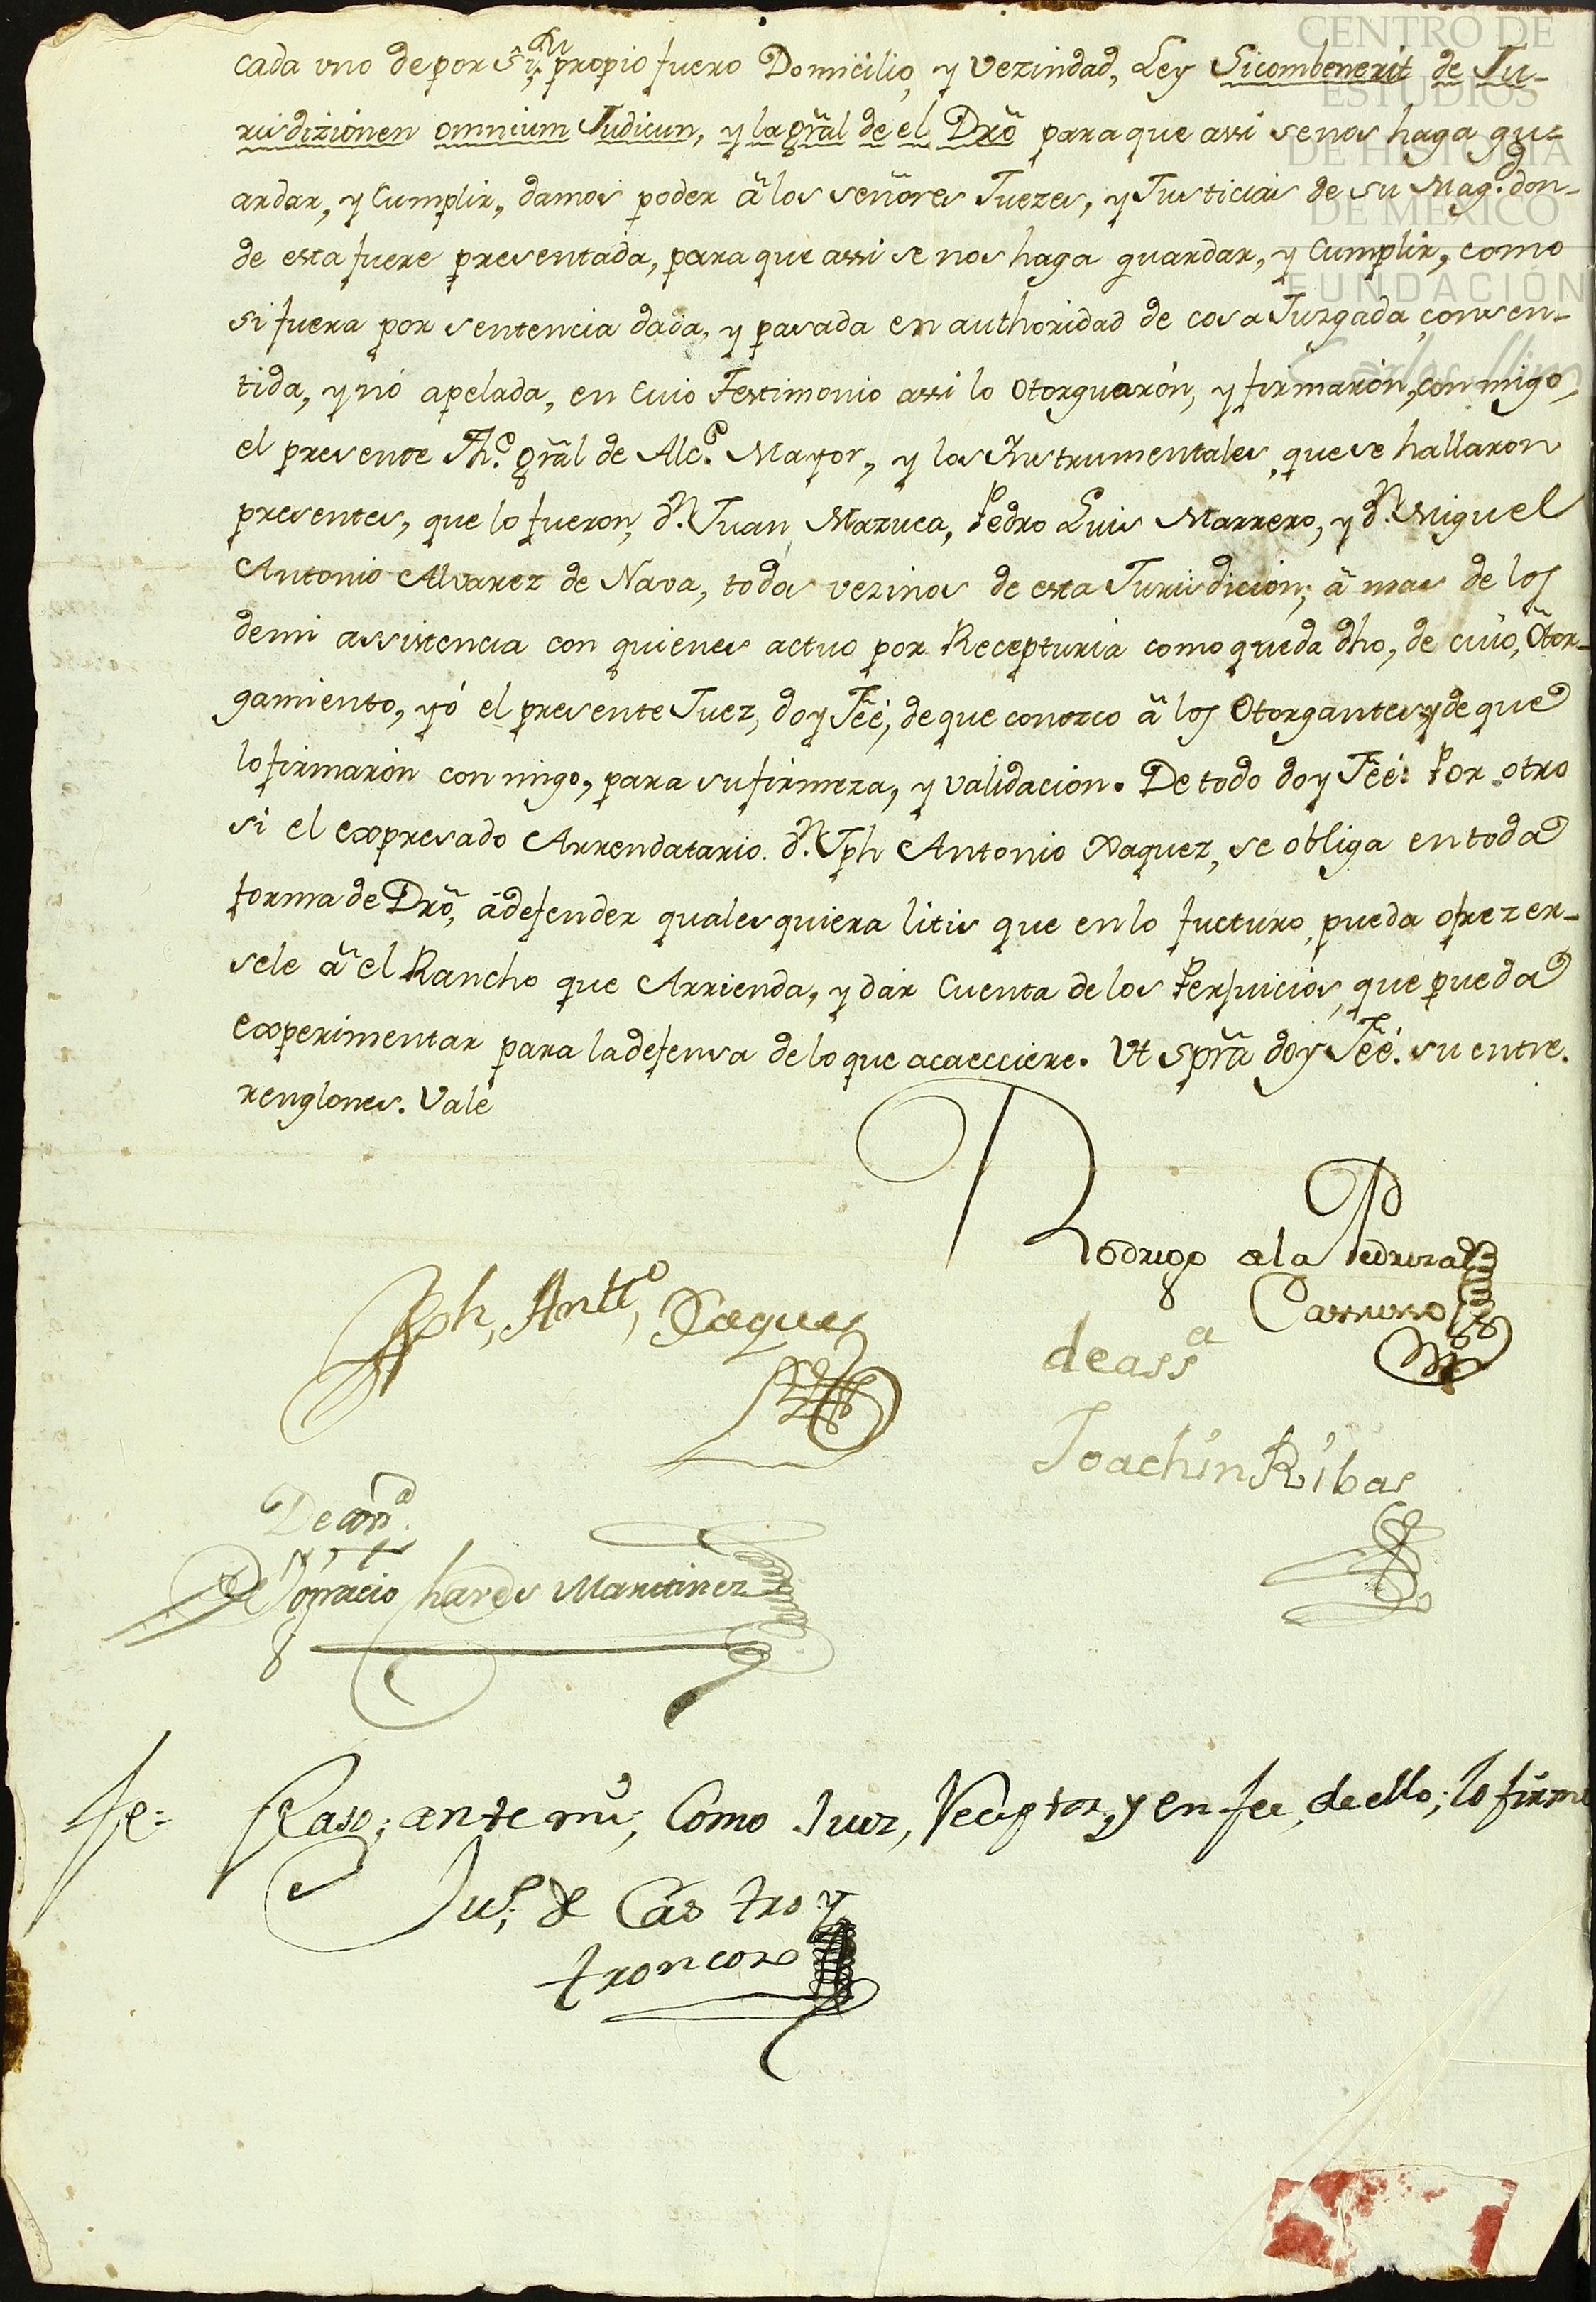 CENTRO DE
ESTUDIOS
DE HISTORIA
DE MEXICO
FUNDACIÓN
Carlos Slim
cada vno de por si, su propio fuero Domicilio, y Vezindad, Ley Sicombenerit de Ju-
risdizionen omnium Judicun, y la grãl de el Drõ para que assi se nos haga gu-
ardar, y Cumplir, damos poder â los señores Juezes, y Justicias de su Magd. don-
de esta fuere presentada, para que assi se nos haga guardar, y Cumplir, como
si fuera por sentencia dada, y pasada en authoridad de cosa Juzgada, consen-
tida, y nó apelada, en Cuio Testimonio assi lo Otorguarón, y firmarón, conmigo,
el presente The. grãl de Alce. Mayor, y los Instrumentales, que se hallaron
presentes, que lo fueron, Dn. Juan Mazuca, Pedro Luis Marrero, y Dn. Miguel
Antonio Alvarez de Nava, todos vezinos de esta Jurisdicion; â mas de los
demi assistencia con quienes actuo por Recepturia como queda dho, de cuio, Otor-
gamiento, yó el presente Juez, doy Feé, de que conozco â los Otorgantes, y de que
lo firmarón con migo, para su firmeza, y validacion. De todo doy Feé: Por otro
si el expresado Arrendatario. Dn. Jph Antonio Xaquez, se obliga en toda
forma de Drõ, â defender qualesquiera litis que en lo fucturo, pueda ofrezer-
sele â el Rancho que Arrienda, y dár Cuenta de los Perjuicios, que pueda
experimentar para la defensa de lo que acaecciere. Vt sprã doy Feé. su entre.
renglones. Vale
Rodrigo a la Pedroza
Jph, Antto, Xaques
deassa
Joachin Ribas
De assa.
Ygnacio Chaves Martinez
Paso, ante mi, Como Juez, Receptor, y en fee, de ello; lo firme
Jul. de Castro y
troncoso